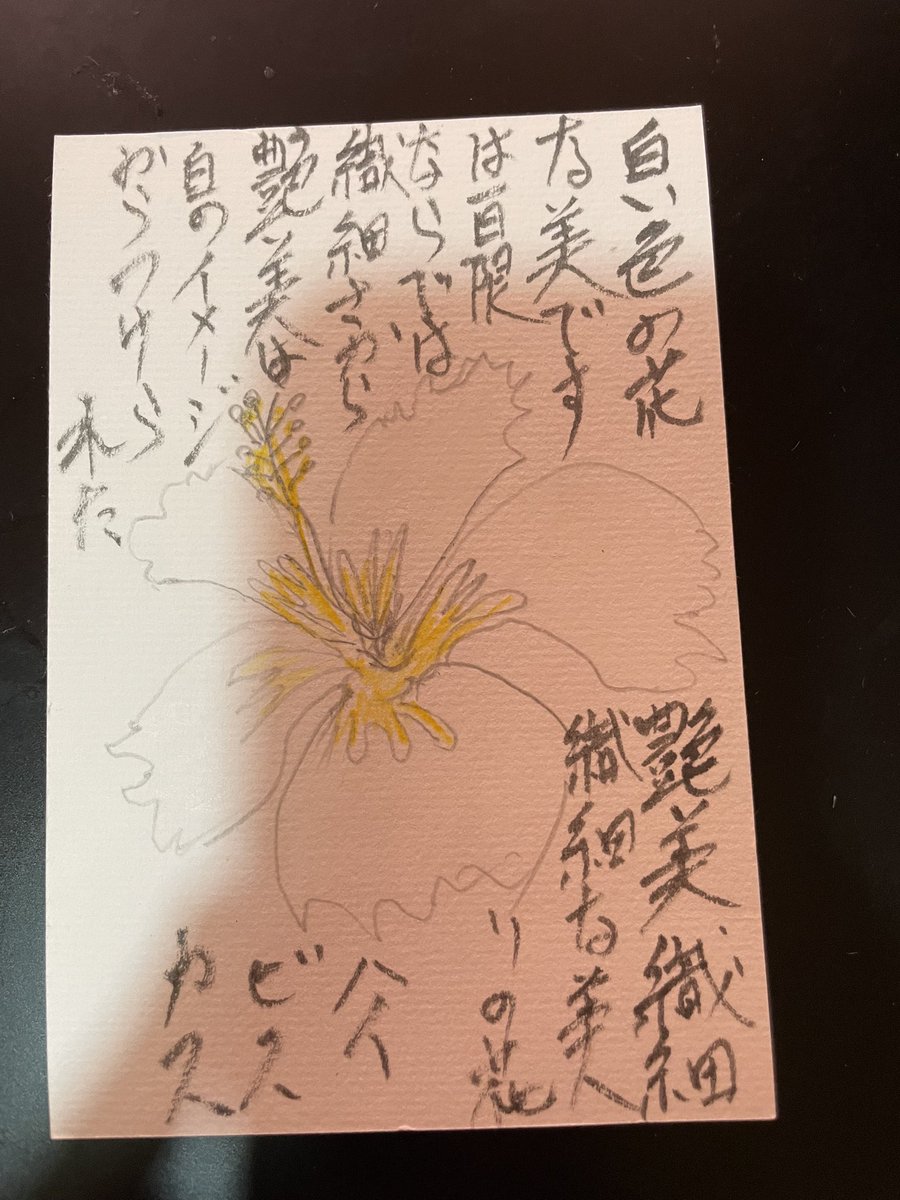 白い色の花
な美です
は一日限
ならでは
繊細さから
艶美は
白のイメージ
からつけら
れた
艶美、繊細
繊細な美
りの花
ハイ
ビス
カス